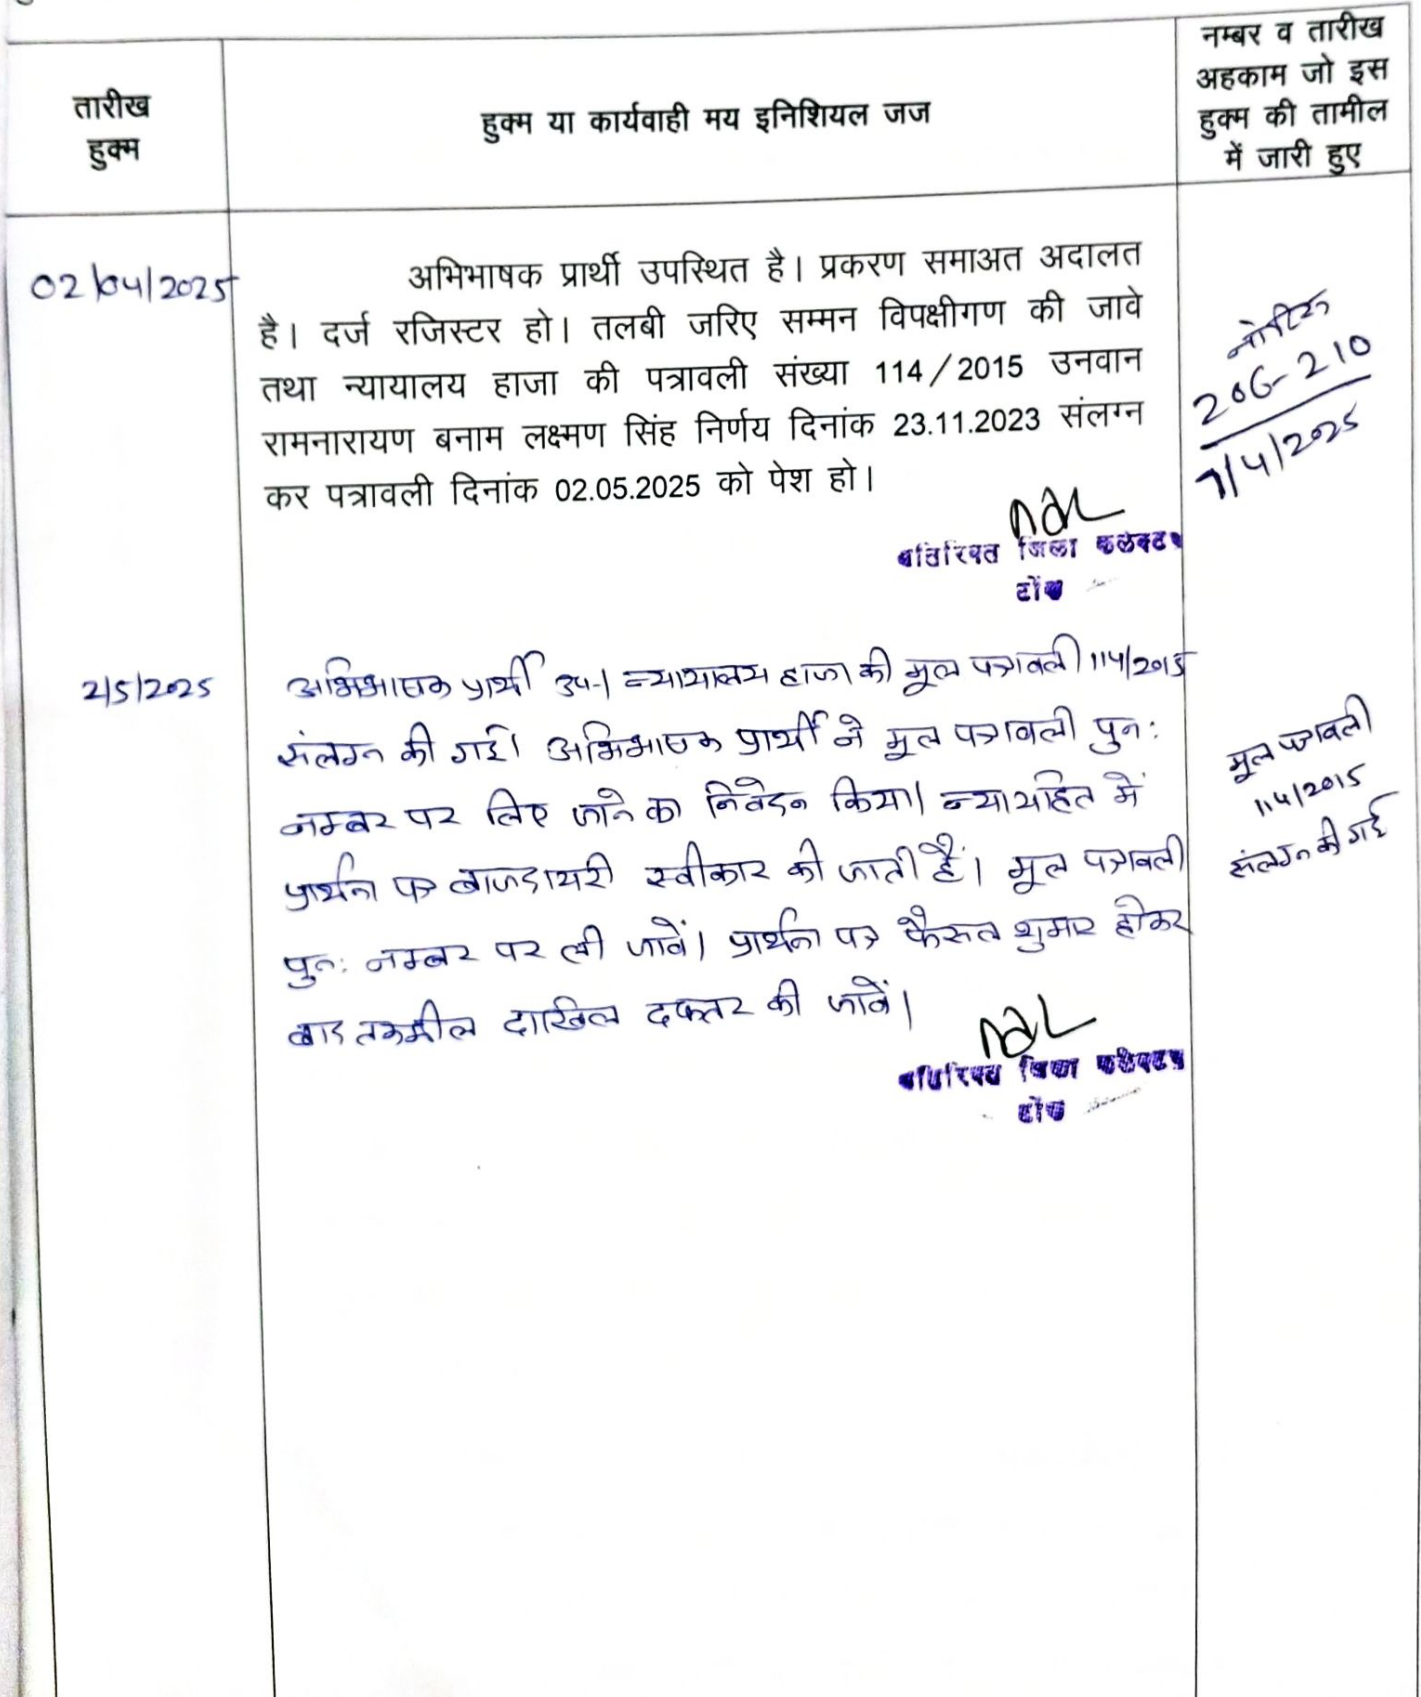 तारीख
हुक्म
हुक्म या कार्यवाही मय इनिशियल जज
नम्बर व तारीख
अहकाम जो इस
हुक्म की तामील
में जारी हुए
02/04/2025
अभिभाषक प्रार्थी उपस्थित है। प्रकरण समाअत अदालत
है। दर्ज रजिस्टर हो। तलबी जरिए सम्मन विपक्षीगण की जावे
तथा न्यायालय हाजा की पत्रावली संख्या 114/2015 उनवान
रामनारायण बनाम लक्ष्मण सिंह निर्णय दिनांक 23.11.2023 संलग्न
कर पत्रावली दिनांक 02.05.2025 को पेश हो।
नोटिस
206-210
7/4/2025
अतिरिक्त जिला कलेक्टर
टोंक
2/5/2025
अभिभाषक प्रार्थी उप। न्यायालय हाजा की मूल पत्रावली 114/2015
संलग्न की गई। अभिभाषक प्रार्थी ने मूल पत्रावली पुन:
नम्बर पर लिए जाने का निवेदन किया। न्यायहित में
प्रार्थना पत्र बाजदायरी स्वीकार की जाती हैं। मूल पत्रावली
पुन: नम्बर पर ली जावें। प्रार्थना पत्र फैसल शुमार होकर
बाद तकमील दाखिल दफ्तर की जावें।
मूल पत्रावली
114/2015
संलग्न की गई
अतिरिक्त जिला कलेक्टर
टोंक